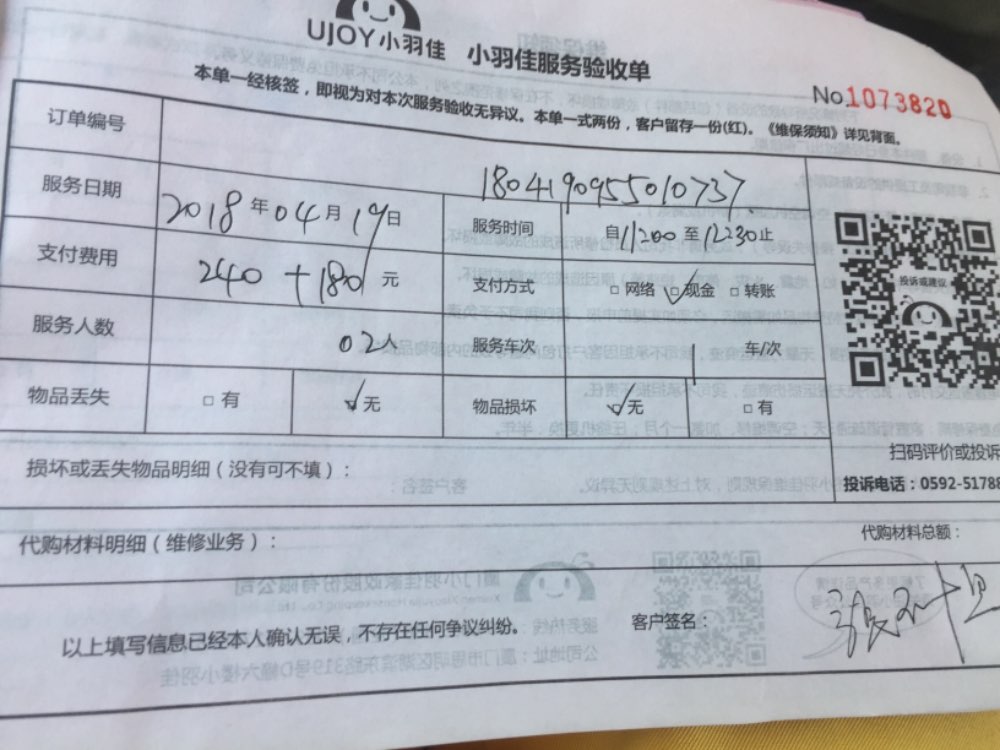 UJOY小羽佳 小羽佳服务验收单
No.1073820
本单一经核签，即视为对本次服务验收无异议。本单一式两份，客户留存一份(红)。《维保须知》详见背面。
订单编号 1804190955010737
服务日期 2018年04月19日 服务时间 自11:00至12:30止
支付费用 240+180元 支付方式 □网络 ☑现金 □转账
投诉或建议
服务人数 02人 服务车次 1 车/次
物品丢失 □有 ☑无 物品损坏 ☑无 □有
扫码评价或投诉
损坏或丢失物品明细（没有可不填）：
投诉电话：0592-51788
代购材料明细（维修业务）： 代购材料总额：
以上填写信息已经本人确认无误，不存在任何争议纠纷。 客户签名：